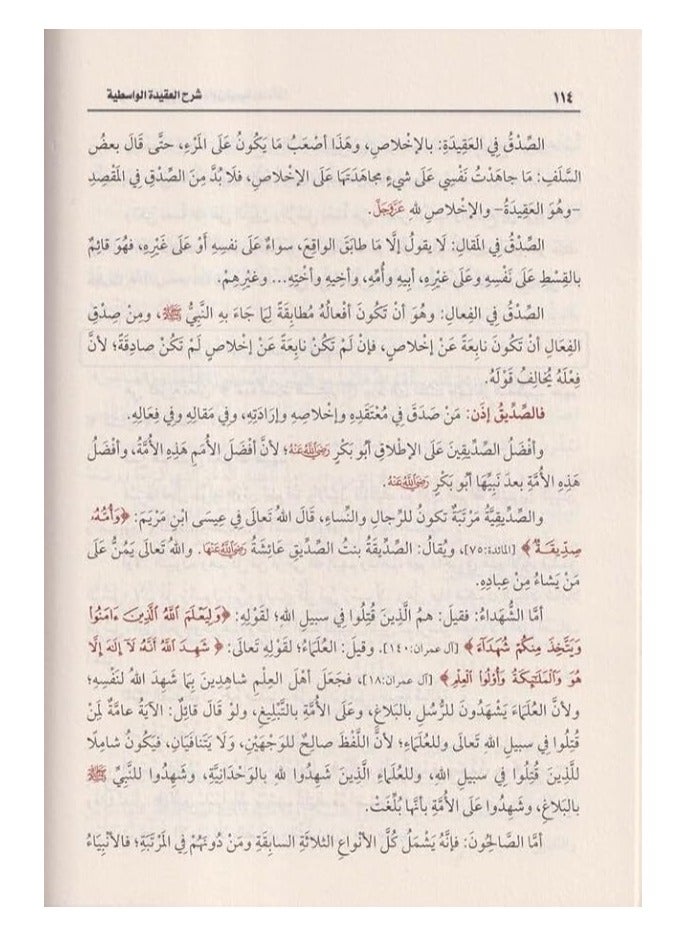 ١١٤ شرح العقيدة الواسطية
الصِّدْقُ فِي العَقِيدَةِ: بالإِخْلاصِ، وهَذَا أصْعَبُ مَا يَكُونُ عَلَى المَرْءِ، حتَّى قَالَ بعضُ
السَّلَفِ: مَا جاهَدْتُ نَفْسِي عَلَى شيءٍ مجاهَدَتَها عَلَى الإِخْلاصِ، فلَا بُدَّ مِنَ الصِّدْقِ فِي المَقْصِدِ
-وهُوَ العَقِيدَةُ- والإِخْلاصِ للهِ عَزَّوَجَلَّ.
الصِّدْقُ فِي المَقالِ: لَا يَقولُ إلَّا مَا طابَقَ الواقِعَ، سواءٌ عَلَى نفسِهِ أَوْ عَلَى غَيْرِهِ، فهُوَ قائِمٌ
بالقِسْطِ عَلَى نَفْسِهِ وعَلَى غيْرِهِ، أبيهِ وأُمِّهِ، وأخِيهِ وأُخْتِهِ... وغيْرِهِمْ.
الصِّدْقُ فِي الفِعالِ: وهُوَ أنْ تَكُونَ أفْعالُهُ مُطابِقَةً لِمَا جَاءَ بهِ النَّبِيُّ ﷺ، ومِنْ صِدْقِ
الفِعَالِ أنْ تَكُونَ نابِعَةً عَنْ إخْلاصٍ، فإنْ لَمْ تَكُنْ نابِعَةً عَنْ إخْلاصٍ لَمْ تَكُنْ صادِقَةً؛ لأنَّ
فِعْلَهُ يُخالِفُ قَوْلَهُ.
فالصِّدِّيقُ إذَن: مَنْ صَدَقَ فِي مُعْتَقَدِهِ وإخْلاصِهِ وإرَادَتِهِ، وفي مَقالِهِ وفِي فِعالِهِ.
وأفْضَلُ الصِّدِّيقينَ عَلَى الإِطْلاقِ أبُو بَكْرٍ رَضِيَ اللَّهُ عَنْهُ؛ لأنَّ أفْضَلَ الأُمَمِ هَذِهِ الأُمَّةُ، وأفْضَلُ
هَذِهِ الأُمَّةِ بعدَ نَبِيِّهَا أبُو بَكْرٍ رَضِيَ اللَّهُ عَنْهُ.
والصِّدِّيقِيَّةُ مَرْتَبَةٌ تكونُ للرِّجالِ والنِّساءِ، قَالَ اللهُ تَعالَى فِي عِيسَى ابْنِ مَرْيَمَ: ﴿وَأُمُّهُۥ
صِدِّيقَةٌ﴾ [المائدة:٧٥]، ويُقالُ: الصِّدِّيقَةُ بنتُ الصِّدِّيقِ عَائِشَةُ رَضِيَ اللَّهُ عَنْهَا. واللهُ تَعالَى يَمُنُّ عَلَى
مَنْ يَشاءُ مِنْ عِبادِهِ.
أمَّا الشُّهَداءُ: فقيلَ: همُ الَّذِينَ قُتِلُوا فِي سبيلِ اللهِ؛ لقَوْلِهِ: ﴿وَلِيَعْلَمَ ٱللَّهُ ٱلَّذِينَ ءَامَنُوا۟
وَيَتَّخِذَ مِنكُمْ شُهَدَآءَ﴾ [آل عمران:١٤٠]. وقيلَ: العُلَمَاءُ؛ لقَوْلِهِ تَعالَى: ﴿شَهِدَ ٱللَّهُ أَنَّهُۥ لَآ إِلَـٰهَ إِلَّا
هُوَ وَٱلْمَلَـٰٓئِكَةُ وَأُو۟لُوا۟ ٱلْعِلْمِ﴾ [آل عمران:١٨]، فجَعَلَ أهْلَ العِلْمِ شاهِدِينَ بِمَا شَهِدَ اللهُ لنَفْسِهِ؛
ولأنَّ العُلَمَاءَ يَشْهَدُونَ للرُّسُلِ بالبَلاغِ، وعَلَى الأُمَّةِ بالتَّبْلِيغِ، ولوْ قَالَ قائِلٌ: الآيَةُ عامَّةٌ لِمَنْ
قُتِلُوا فِي سبيلِ اللهِ تَعالَى وللعُلَمَاءِ؛ لأنَّ اللَّفْظَ صالِحٌ للوَجْهَيْنِ، وَلَا يَتَنافَيَانِ، فيَكُونُ شامِلًا
للَّذِينَ قُتِلُوا فِي سبيلِ اللهِ، وللعُلَماءِ الَّذِينَ شَهِدُوا للهِ بالوَحْدَانِيَّةِ، وشَهِدُوا للنَّبِيِّ ﷺ
بالبَلَاغِ، وشَهِدُوا عَلَى الأُمَّةِ بأنَّها بُلِّغَتْ.
أمَّا الصَّالِحُونَ: فإنَّهُ يَشْمَلُ كُلَّ الأنْواعِ الثَّلاثَةِ السابِقَةِ ومَنْ دُونَهُمْ فِي المَرْتَبَةِ؛ فالأَنْبِيَاءُ